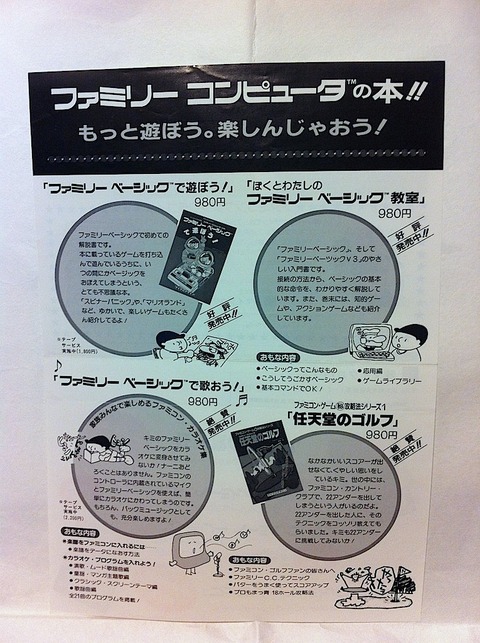 ファミリー コンピュータ™の本!!
もっと遊ぼう。楽しんじゃおう!
「ファミリー ベーシック™で遊ぼう!」
980円
ファミリーベーシックで初めての
解説書です。
本に載っているゲームを打ち込
んで遊んでいるうちに、い
つの間にかベーシックを
おぼえてしまうという、
とても不思議な本。
「スピナーパニック」や、「マリオランド」
など、ゆかいで、楽しいゲームもたくさ
ん紹介してるよ!
ファミリー ベーシック
で遊ぼう!
好評
発売中!!
※テープ
サービス
実施中(1,800円)
「ぼくとわたしの
ファミリー ベーシック™教室」
980円
好評
発売中!!
「ファミリーベーシック」、そして
「ファミリーベーシックV3」のやさ
しい入門書です。
接続の方法から、ベーシックの基本
的な命令を、わかりやすく解説して
います。また、巻末には、知的ゲー
ムや、アクションゲームなども紹介
しています。
おもな内容
•ベーシックってこんなもの
•こうしてうごかすベーシック
•基本コマンドでOK!
•応用編
•ゲームライブラリー
「ファミリー ベーシック™で歌おう!」
980円
絶賛
発売中!!
家族みんなで楽しめるファミコン・カラオケ集
キミのファミリー
ベーシックをカラ
オケに変身させてみ
ないか!ナーニおど
ろくことはありません。ファミコンの
コントローラに内蔵されているマイク
とファミリーベーシックを使えば、簡
単にカラオケにかわってしまうのです。
もちろん、バックミュージックとして
も、充分楽しめますよ!
※テープ
サービス
実施中
(2,200円)
おもな内容
•楽譜をファミコンに入れるには
•楽譜をデータになおす方法
•カラオケ・プログラムを入れよう!
•演歌・ムード歌謡曲編
•童謡・マンガ主題歌編
•クラシック・スクリーンテーマ編
•歌謡曲編
全21曲のプログラムを掲載!
ファミコン・ゲーム㊙攻略法シリーズ1
「任天堂のゴルフ」
980円
絶賛
発売中!!
任天堂のゴルフ
なかなかいいスコアーが出
せなくて、くやしい思いをし
ているキミ。世の中には、
ファミコン・カントリー・
クラブで、22アンダーを出して
しまうという人がいるのだよ。
22アンダーを出した人に、その
テクニックをコッソリ教えても
らいました。キミも22アンダー
に挑戦してみないか!
おもな内容
•ファミコン・ゴルフファンの皆さんへ
•ファミリーC.C.テクニック
•パターをうまく使ってスコアアップ
•プロもまっ青 18ホール攻略法